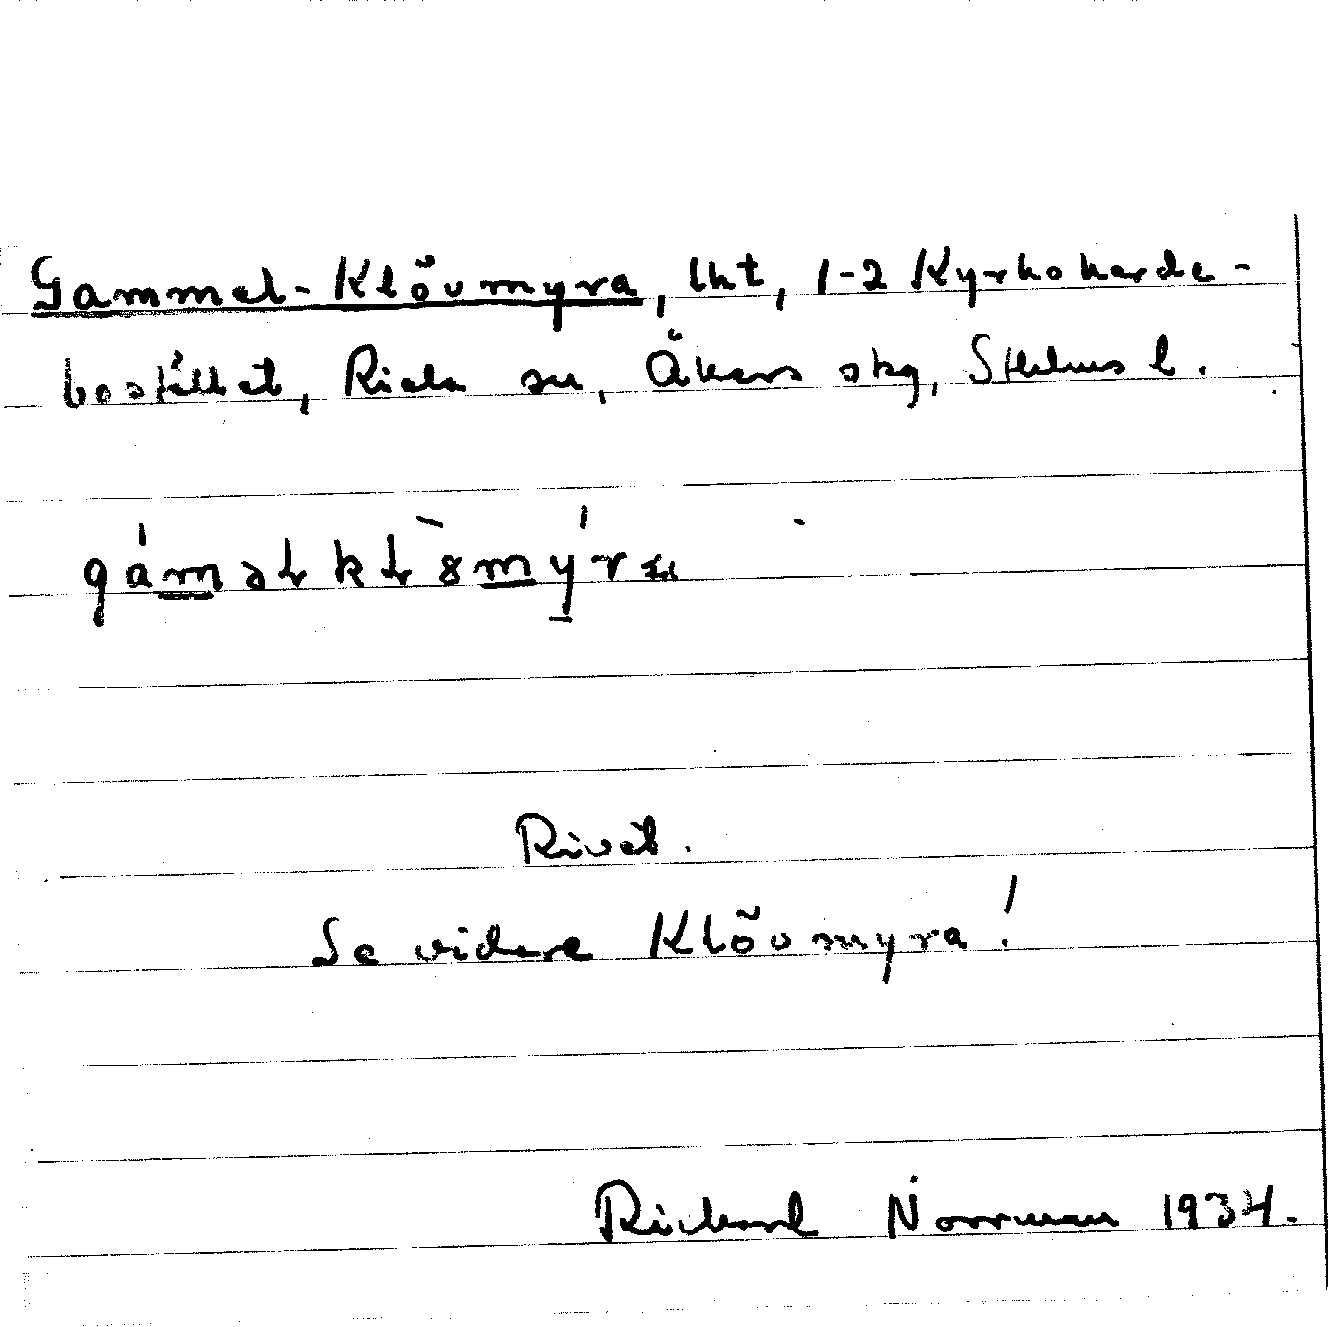 Gammel-Klövmyra, lht, 1-2 Kyrkoherde-
bostället, Riala sn, Åkers skg, Sthlms l.
Rivet.
Se vidare Klövmyra!
Rickard Norrman 1934.